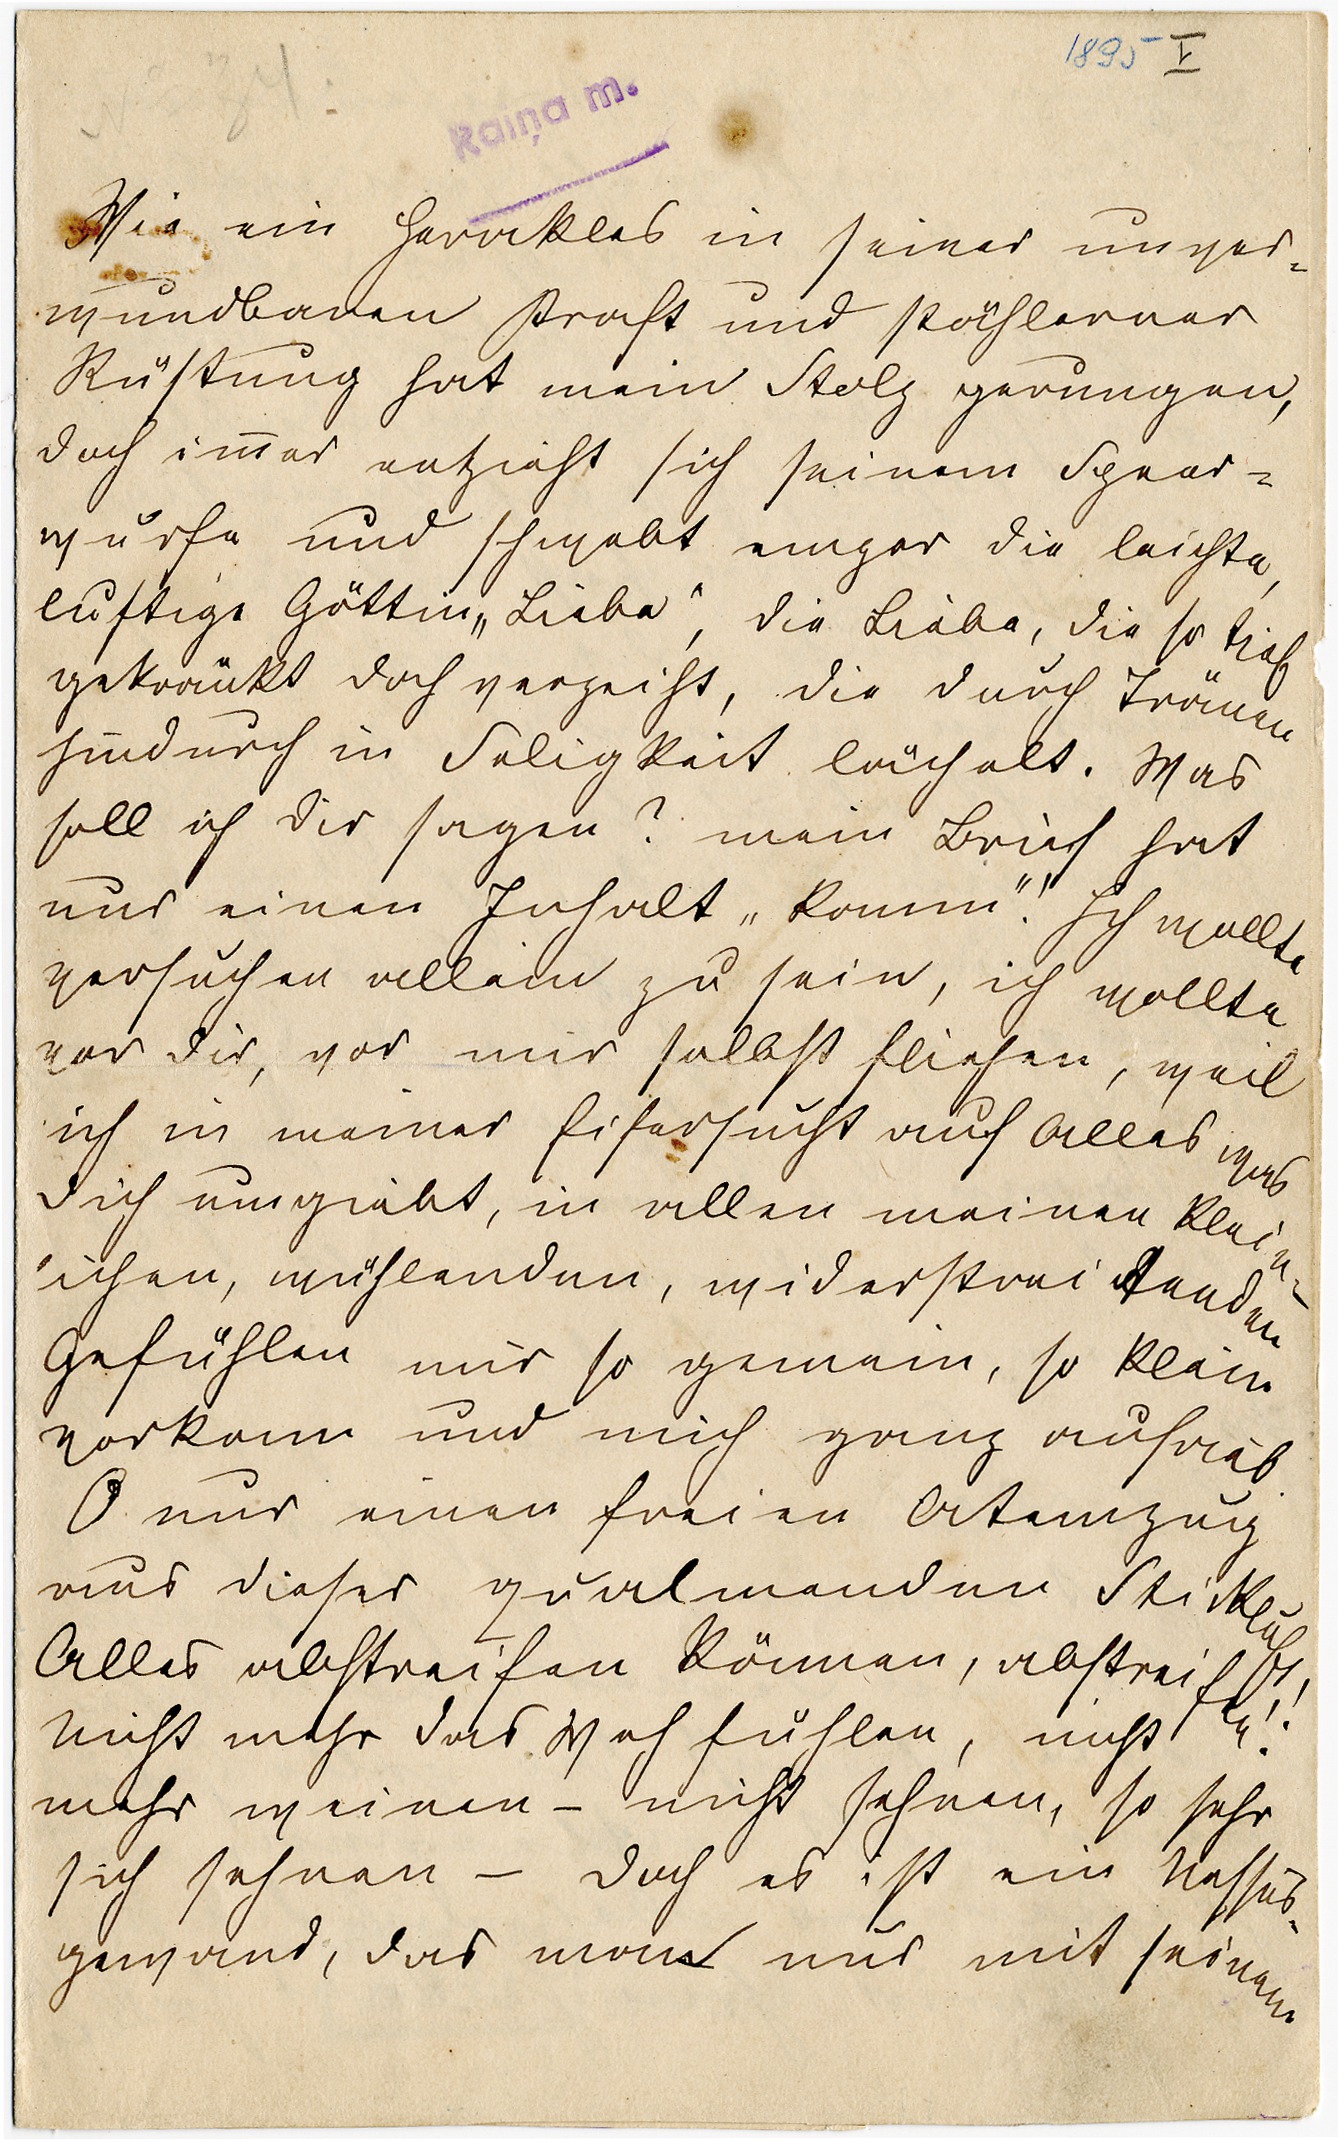 1895 I
№ 34.
Raiņa m.
Wie ein Herakles in seiner unver=
wundbaren Kraft und stählerner
Rüstung hat mein Stolz gerungen,
doch im̅er entzieht sich seinem Speer=
wurfe und schwebt empor die leichte,
luftige Göttin „Liebe“, die Liebe, die so tief
gekränkt doch verzeiht, die durch Tränen
hindurch in Seligkeit lächelt. Was
soll ich dir sagen? mein Brief hat
nur einen Inhalt „Komm“! Ich wollte
versuchen allein zu sein, ich wollte
vor dir, vor mir selbst fliehen, weil
ich in meiner Eifersucht auf Alles was
dich umgiebt, in allen meinen klein=
ichen, wühlenden, widerstreitenden
Gefühlen mir so gemein, so klein
vorkam und mich ganz aufrieb
O nur einen freien Atemzug
aus dieser qualmenden Stickluft,
Alles abstreifen können, abstreifen!!
Nicht mehr das Weh fühlen, nicht
mehr weinen – nicht sehnen, so sehr
sich sehnen – doch es ist ein Nessus=
gewand, das man nur mit seinem